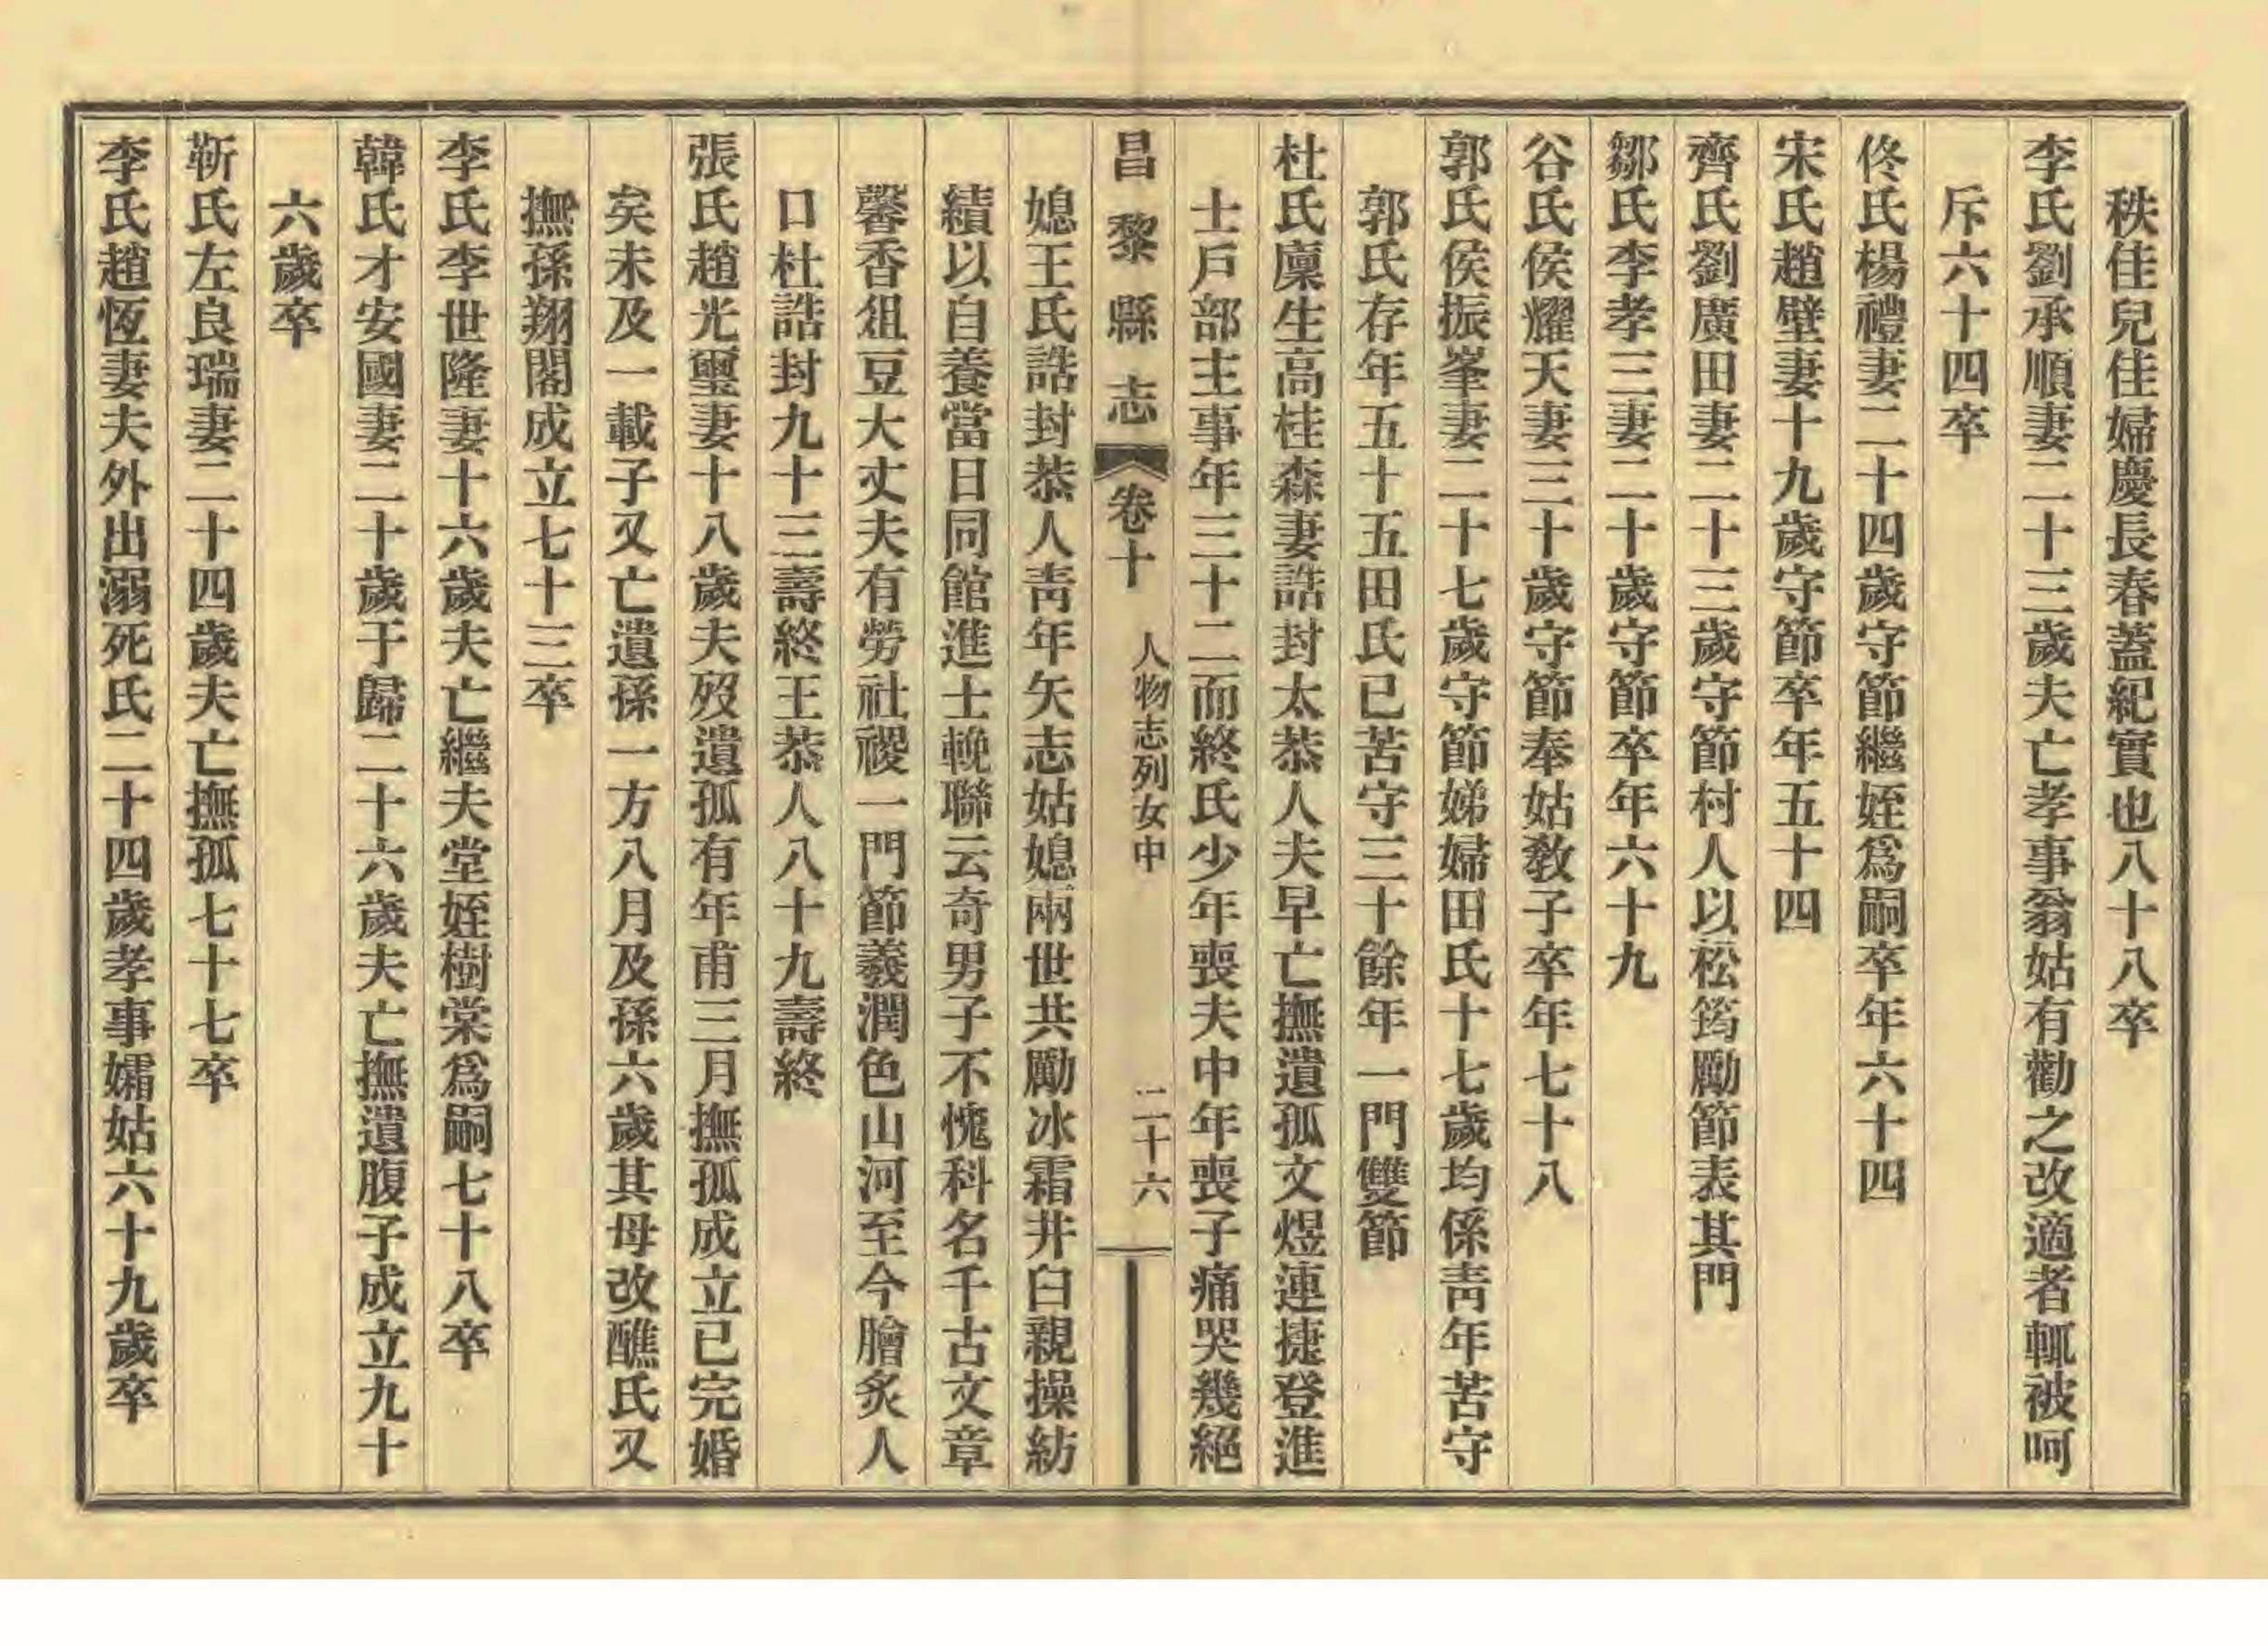 秩佳兒佳婦慶長春蓋紀實也八十八卒
李氏劉承順妻二十三歲夫亡孝事翁姑有勸之改適者輒被呵
斥六十四卒
佟氏楊禮妻二十四歲守節繼姪爲嗣卒年六十四
宋氏趙壁妻十九歲守節卒年五十四
齊氏劉廣田妻二十三歲守節村人以松筠勵節表其門
鄒氏李孝三妻二十歲守節卒年六十九
谷氏侯耀天妻三十歲守節奉姑敎子卒年七十八
郭氏侯振峯妻二十七歲守節娣婦田氏十七歲均係靑年苦守
郭氏存年五十五田氏已苦守三十餘年一門雙節
杜氏廩生高桂森妻誥封太恭人夫早亡撫遺孤文煜連捷登進
士戶部主事年三十二而終氏少年喪夫中年喪子痛哭幾絕
昌黎縣志 卷十 人物志列女中 二十六
媳王氏誥封恭人靑年矢志姑媳兩世共勵冰霜井臼親操紡
績以自養當日同館進士輓聯云奇男子不愧科名千古文章
馨香俎豆大丈夫有勞社稷一門節義潤色山河至今膾炙人
口杜誥封九十三壽終王恭人八十九壽終
張氏趙光璽妻十八歲夫歿遺孤有年甫三月撫孤成立已完婚
矣未及一載子又亡遺孫一方八月及孫六歲其母改醮氏又
撫孫翔閣成立七十三卒
李氏李世隆妻十六歲夫亡繼夫堂姪樹棠爲嗣七十八卒
韓氏才安國妻二十歲于歸二十六歲夫亡撫遺腹子成立九十
六歲卒
靳氏左良瑞妻二十四歲夫亡撫孤七十七卒
李氏趙恆妻夫外出溺死氏二十四歲孝事孀姑六十九歲卒